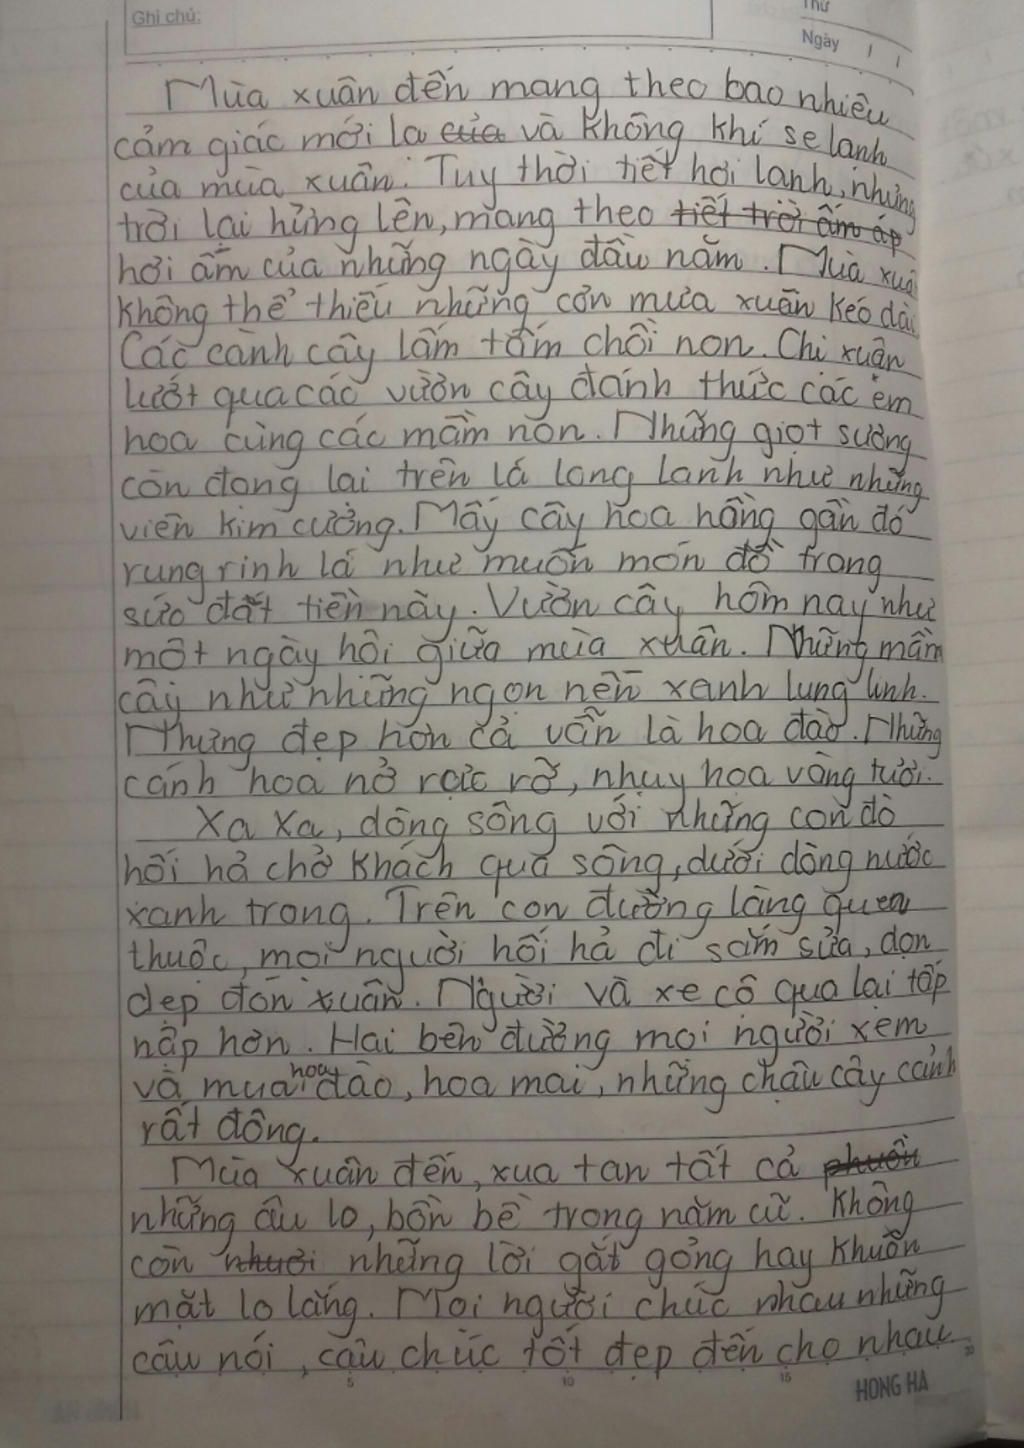 Ghi chú:
Thứ
Ngày / /
Mùa xuân đến mang theo bao nhiêu
cảm giác mới lạ của và không khí se lạnh
của mùa xuân. Tuy thời tiết hơi lạnh, nhưng
trời lại hửng lên, mang theo tiết trời ấm áp
hơi ấm của những ngày đầu năm. Mùa xuâ
không thể thiếu những cơn mưa xuân kéo dài
Các cành cây lấm tấm chồi non. Chị xuân
lướt qua các vườn cây đánh thức các em
hoa cùng các mầm non. Những giọt sương
còn đọng lại trên lá long lanh như những
viên kim cương. Mấy cây hoa hồng gần đó
rung rinh lá như muốn món đồ trang
sức đắt tiền này. Vườn cây hôm nay như
một ngày hội giữa mùa xuân. Những mầm
cây như những ngọn nến xanh lung linh.
Nhưng đẹp hơn cả vẫn là hoa đào. Những
cánh hoa nở rực rỡ, nhụy hoa vàng tươi.
Xa xa, dòng sông với những con đò
hối hả chở khách qua sông, dưới dòng nước
xanh trong. Trên con đường làng quen
thuộc, mọi người hối hả đi sắm sửa, dọn
dẹp đón xuân. Người và xe cộ qua lại tấp
nập hơn. Hai bên đường mọi người xem
và mua hoa đào, hoa mai, những chậu cây cảnh
rất đông.
Mùa xuân đến, xua tan tất cả phuồn
những âu lo, bồn bề trong năm cũ. Không
còn những lời gắt gỏng hay khuôn
mặt lo lắng. Mọi người chúc nhau những
câu nói, câu chúc tốt đẹp đến cho nhau
5 10 15 20
HONG HA